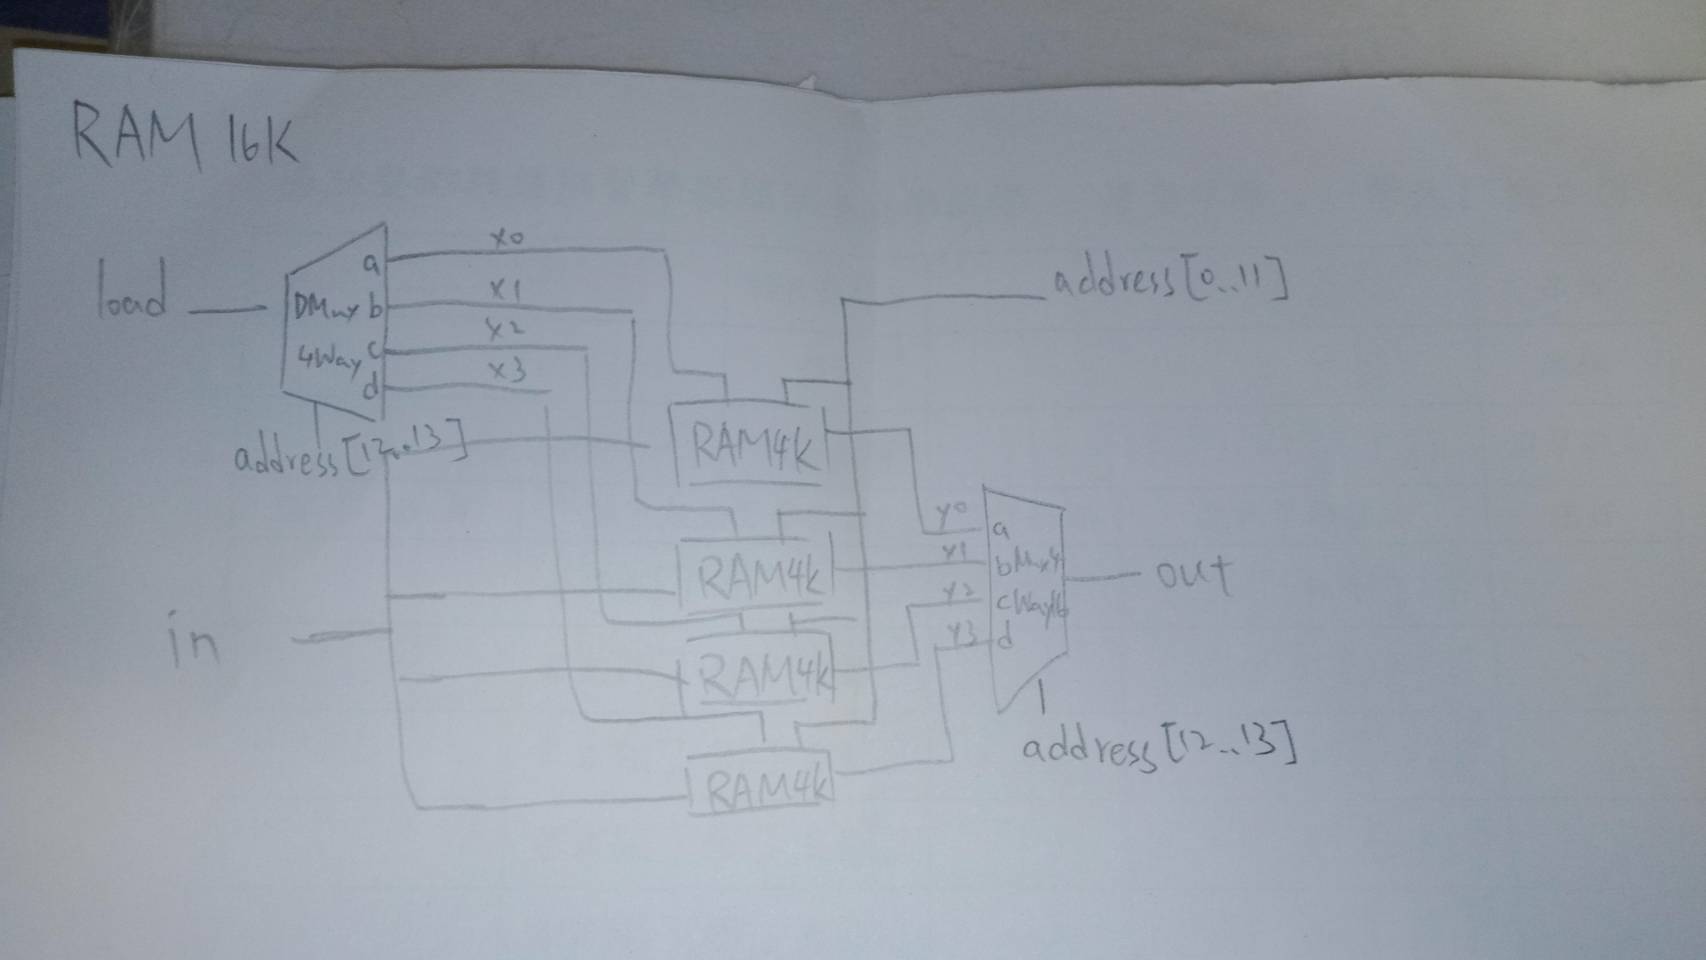 RAM 16K
load
DMux
4Way
a
b
c
d
x0
x1
x2
x3
address[12..13]
address[0..11]
in
RAM4k
RAM4k
RAM4k
RAM4k
y0
y1
y2
y3
a
b
c
d
Mux4
Way16
out
address[12..13]